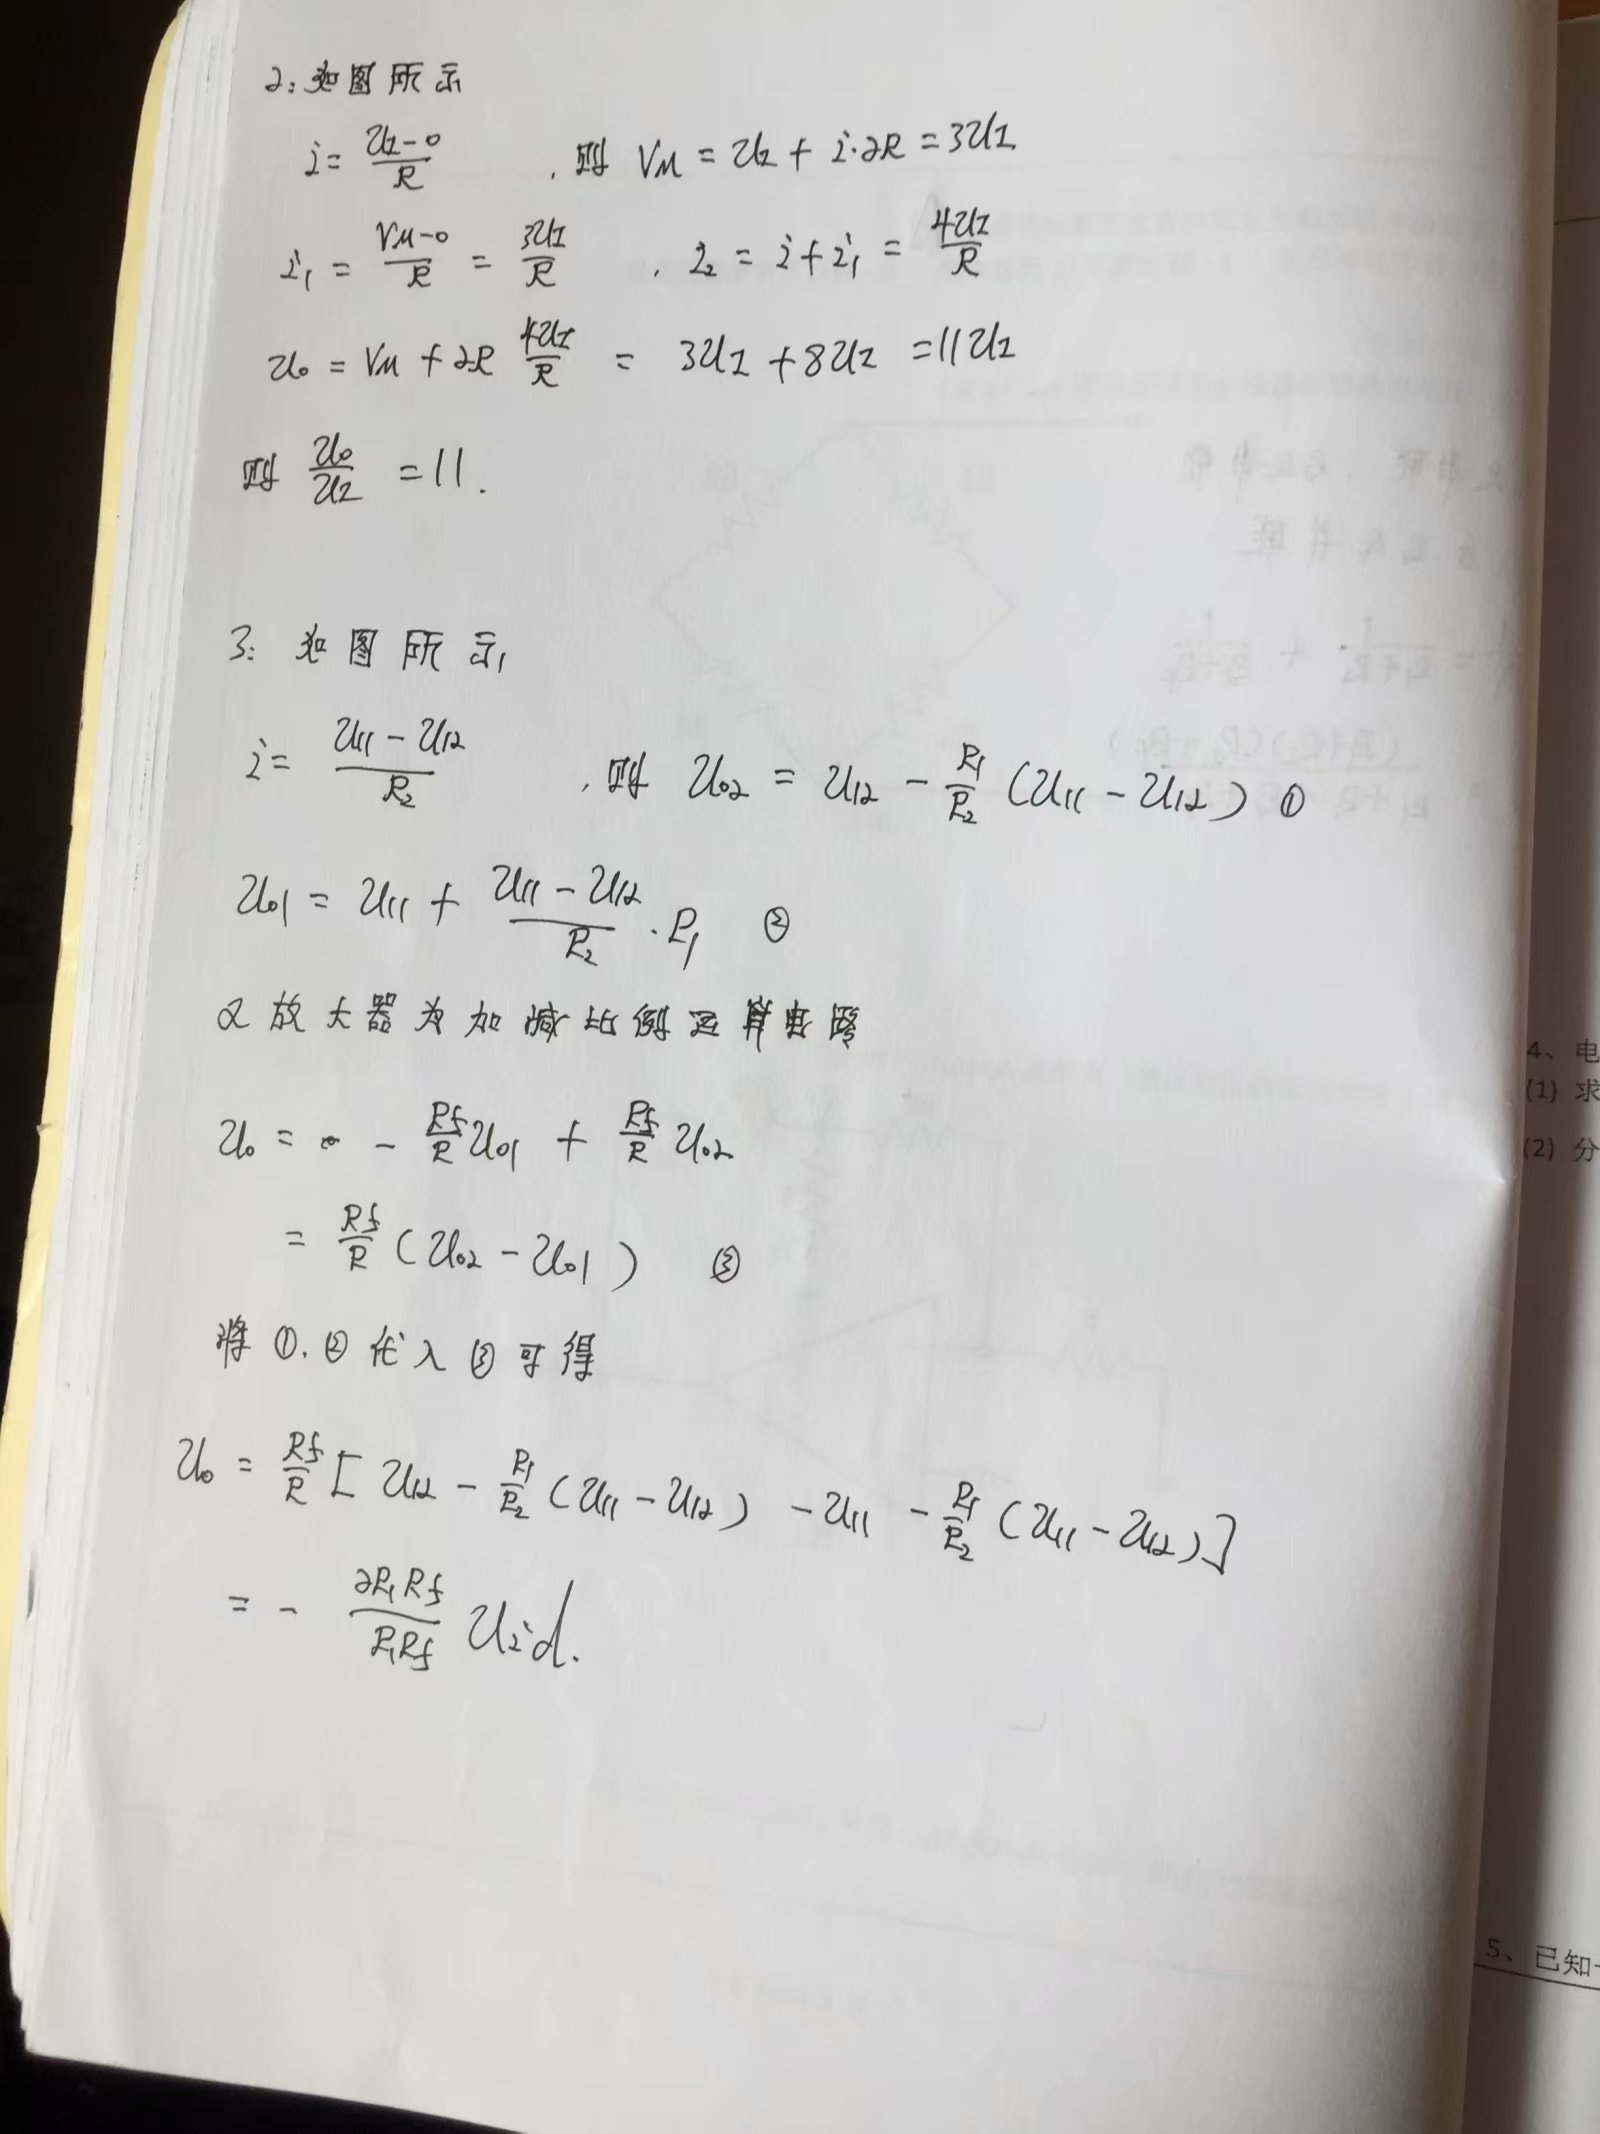 2: 如图所示
i = (U_I - 0)/R , 则 V_M = U_I + i·2R = 3U_I
i_1 = (V_M - 0)/R = 3U_I/R , i_2 = i + i_1 = 4U_I/R
U_o = V_M + 2R 4U_I/R = 3U_I + 8U_I = 11U_I
则 U_o/U_I = 11.
3: 如图所示
i = (U_{I1} - U_{I2})/R_2 , 则 U_{o2} = U_{I2} - R_1/R_2 (U_{I1} - U_{I2}) ①
U_{o1} = U_{I1} + (U_{I1} - U_{I2})/R_2 · R_1 ②
2 放大器为加减比例运算电路
U_o = - R_f/R U_{o1} + R_f/R U_{o2}
= R_f/R (U_{o2} - U_{o1}) ③
将 ①. ② 代入 ③ 可得
U_o = R_f/R [ U_{I2} - R_1/R_2 (U_{I1} - U_{I2}) - U_{I1} - R_1/R_2 (U_{I1} - U_{I2}) ]
= - 2R_1R_f/R_1R_f U_{id}.
4、电
(1) 求
(2) 分
5、已知